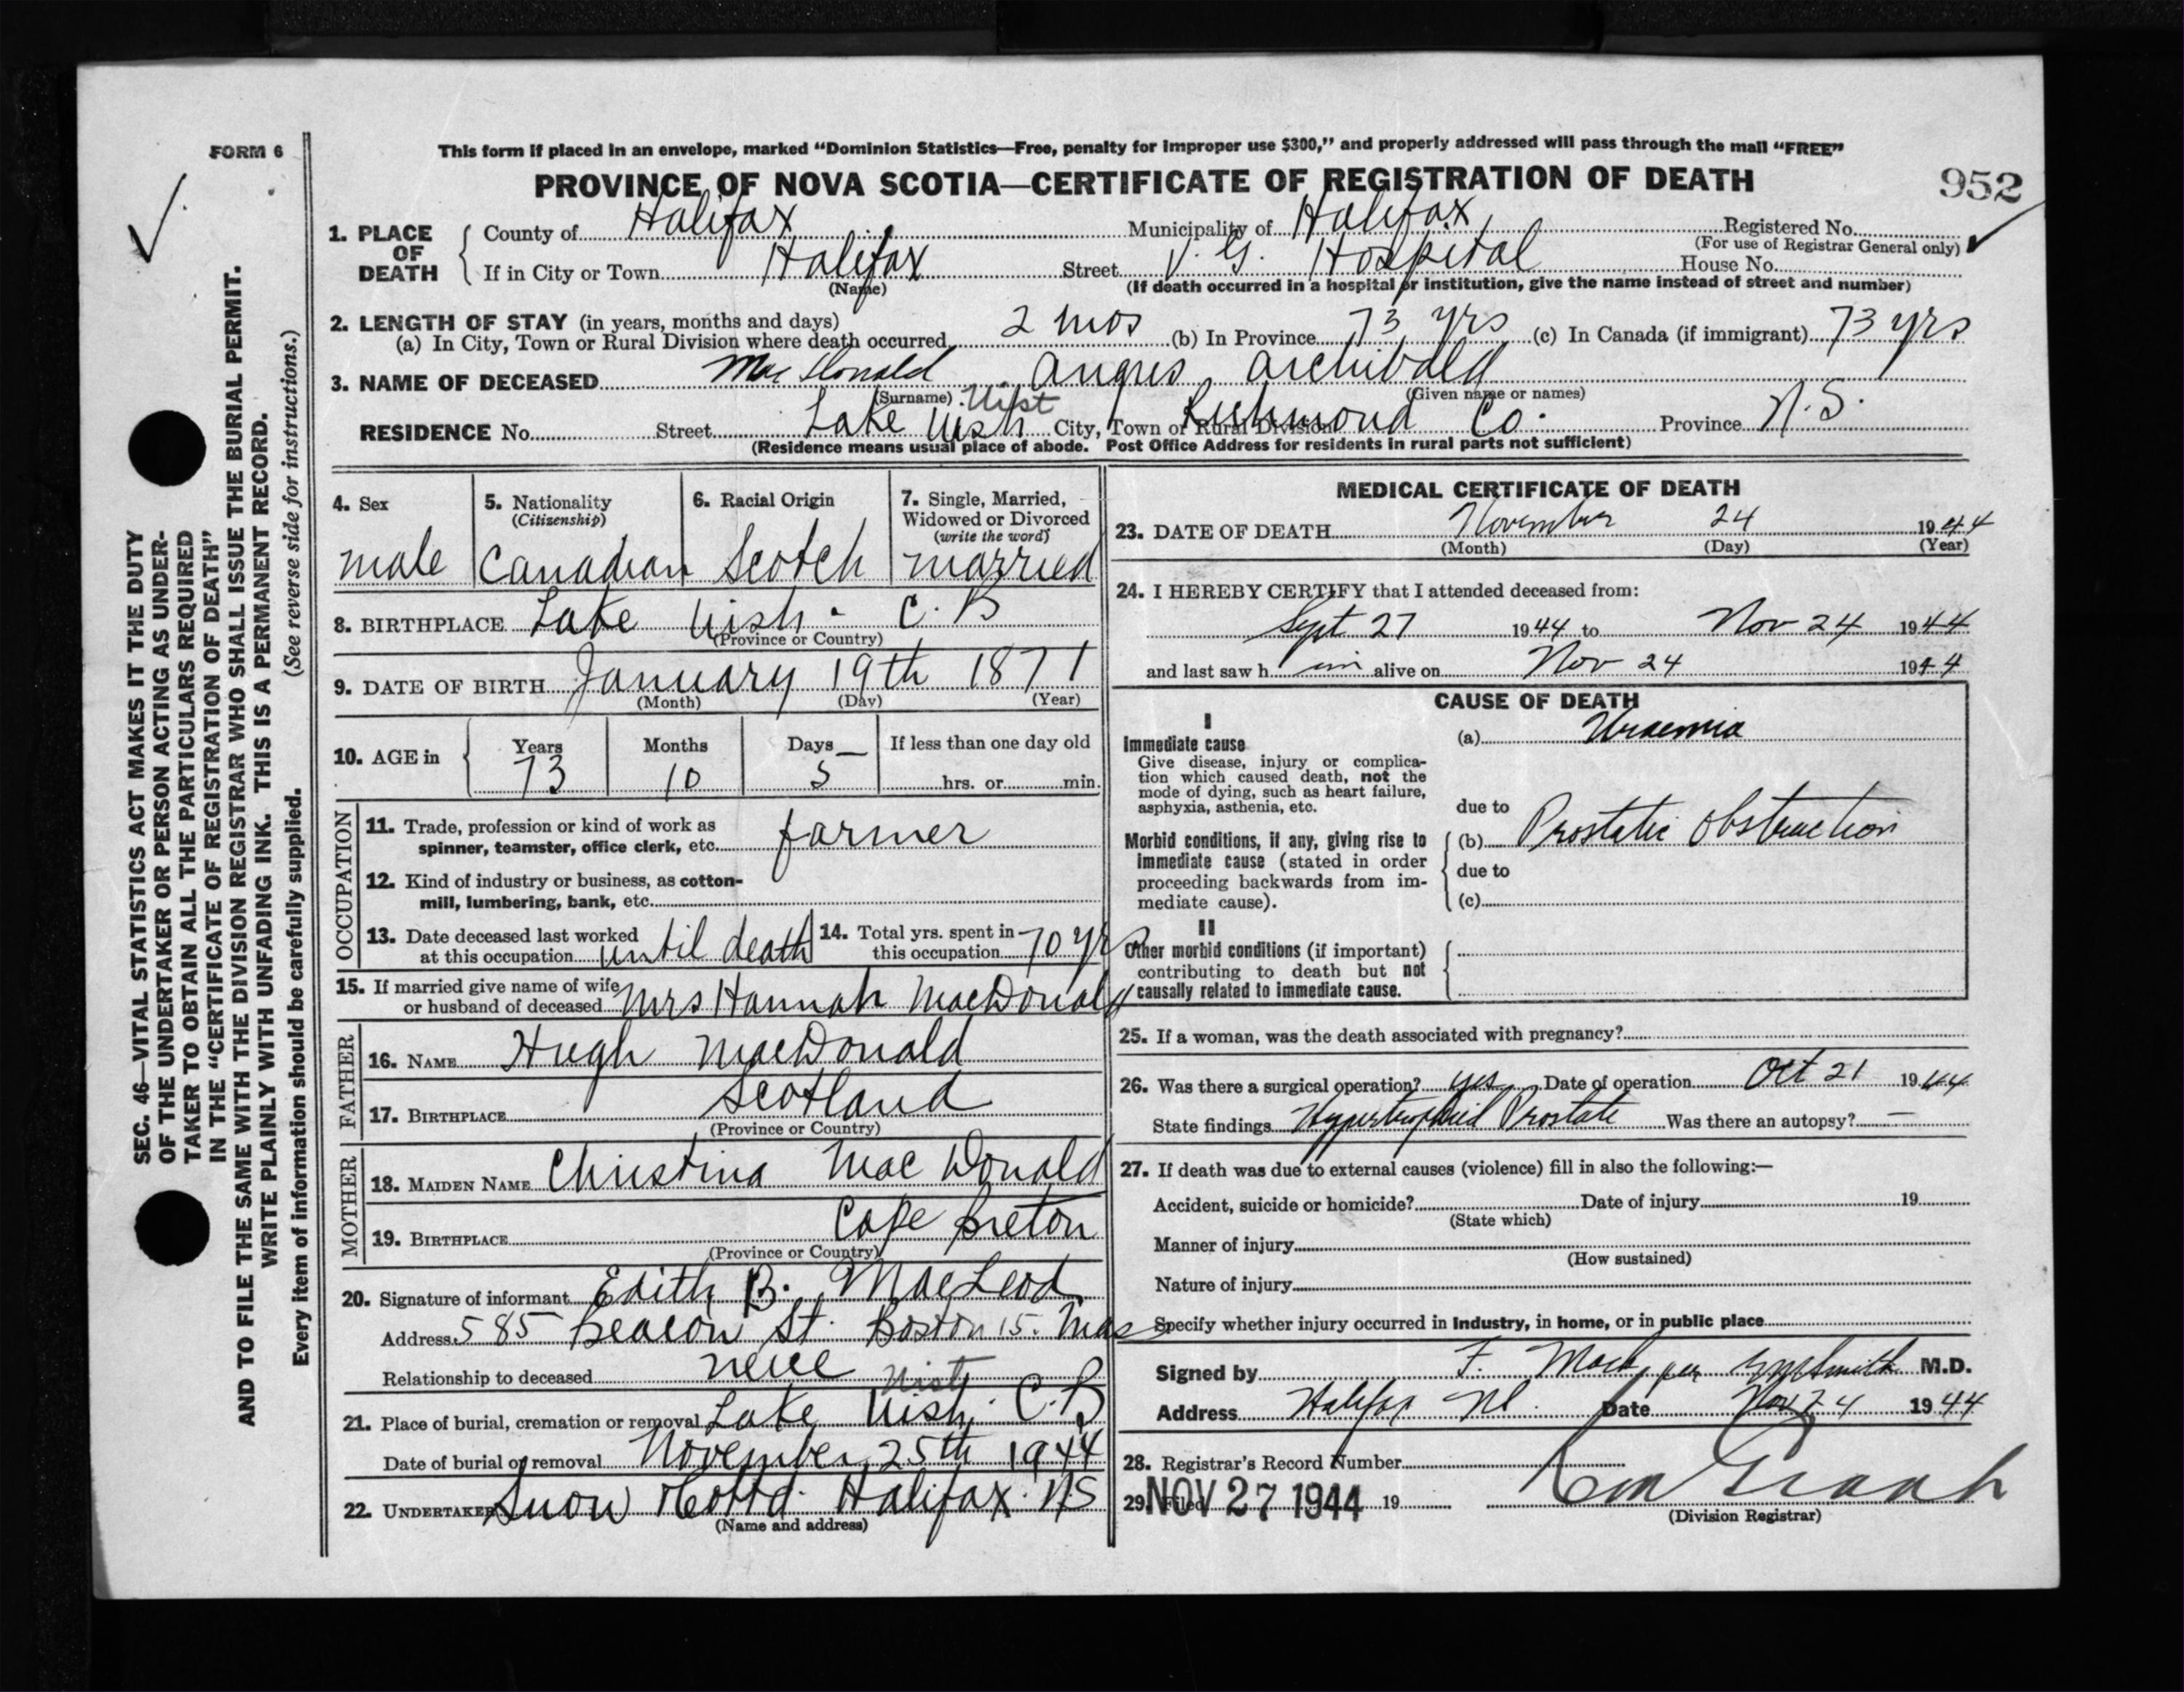 FORM 6
This form if placed in an envelope, marked "Dominion Statistics—Free, penalty for improper use $300," and properly addressed will pass through the mail "FREE"
PROVINCE OF NOVA SCOTIA—CERTIFICATE OF REGISTRATION OF DEATH
952
1. PLACE OF DEATH
County of Halifax Municipality of Halifax Registered No.
(For use of Registrar General only)
If in City or Town Halifax Street V. G. Hospital House No.
(Name) (If death occurred in a hospital or institution, give the name instead of street and number)
2. LENGTH OF STAY (in years, months and days)
(a) In City, Town or Rural Division where death occurred 2 mos (b) In Province 73 yrs (c) In Canada (if immigrant) 73 yrs
3. NAME OF DECEASED MacDonald Angus Archibald
(Surname) (Given name or names)
Uist
RESIDENCE No. Street Lake Uish City, Town or Rural Division Richmond Co. Province N.S.
(Residence means usual place of abode. Post Office Address for residents in rural parts not sufficient)
4. Sex
male
5. Nationality
(Citizenship)
Canadian
6. Racial Origin
Scotch
7. Single, Married,
Widowed or Divorced
(write the word)
married
8. BIRTHPLACE Lake Uish. C. B
(Province or Country)
9. DATE OF BIRTH January 19th 1871
(Month) (Day) (Year)
10. AGE in
Years Months Days If less than one day old
73 10 5 hrs. or min.
OCCUPATION
11. Trade, profession or kind of work as
spinner, teamster, office clerk, etc. farmer
12. Kind of industry or business, as cotton-
mill, lumbering, bank, etc.
13. Date deceased last worked
at this occupation until death
14. Total yrs. spent in
this occupation 70 yrs
15. If married give name of wife
or husband of deceased Mrs Hannah MacDonald
FATHER
16. NAME Hugh MacDonald
17. BIRTHPLACE Scotland
(Province or Country)
MOTHER
18. MAIDEN NAME Christina MacDonald
19. BIRTHPLACE Cape Breton
(Province or Country)
20. Signature of informant Edith B. MacLeod
Address 585 Beacon St. Boston 15. Mass
Relationship to deceased neice
Uist
21. Place of burial, cremation or removal Lake Uish. C.B
Date of burial or removal November 25th 1944
22. UNDERTAKER Snow & Co Ltd. Halifax. NS
(Name and address)
MEDICAL CERTIFICATE OF DEATH
23. DATE OF DEATH November 24 1944
(Month) (Day) (Year)
24. I HEREBY CERTIFY that I attended deceased from:
Sept 27 1944 to Nov 24 1944
and last saw him alive on Nov 24 1944
CAUSE OF DEATH
I
Immediate cause
Give disease, injury or complica-
tion which caused death, not the
mode of dying, such as heart failure,
asphyxia, asthenia, etc.
(a) Uraemia
due to
Morbid conditions, if any, giving rise to
immediate cause (stated in order
proceeding backwards from im-
mediate cause).
(b) Prostatic Obstruction
due to
(c)
II
Other morbid conditions (if important)
contributing to death but not
causally related to immediate cause.
25. If a woman, was the death associated with pregnancy?
26. Was there a surgical operation? yes Date of operation Oct 21 1944
State findings Hypertrophied Prostate Was there an autopsy? —
27. If death was due to external causes (violence) fill in also the following:—
Accident, suicide or homicide? Date of injury 19
(State which)
Manner of injury
(How sustained)
Nature of injury
Specify whether injury occurred in Industry, in home, or in public place
Signed by F. Mack, per Smith M.D.
Address Halifax NS. Date Nov 24 1944
28. Registrar's Record Number
29. Filed NOV 27 1944 19
(Division Registrar)
SEC. 46—VITAL STATISTICS ACT MAKES IT THE DUTY
OF THE UNDERTAKER OR PERSON ACTING AS UNDER-
TAKER TO OBTAIN ALL THE PARTICULARS REQUIRED
IN THE "CERTIFICATE OF REGISTRATION OF DEATH"
AND TO FILE THE SAME WITH THE DIVISION REGISTRAR WHO SHALL ISSUE THE BURIAL PERMIT.
WRITE PLAINLY WITH UNFADING INK. THIS IS A PERMANENT RECORD.
Every item of information should be carefully supplied. (See reverse side for instructions.)